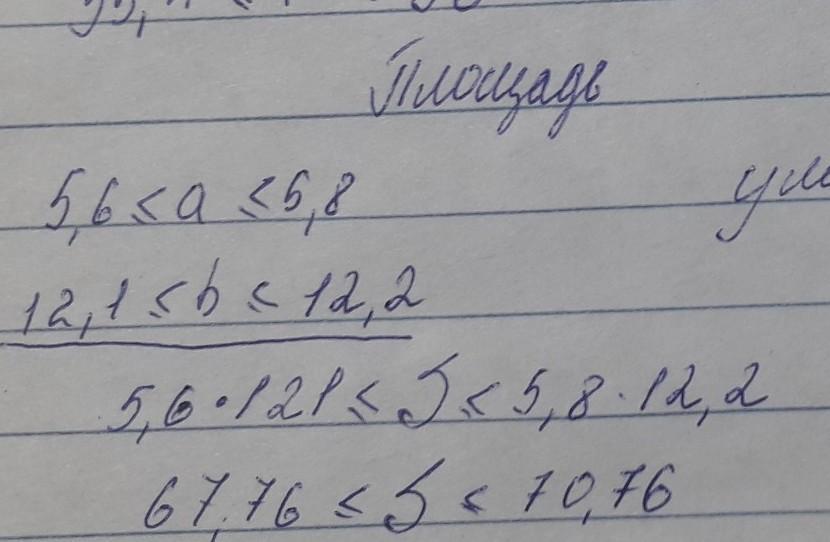 Площадь
5,6 ≤ a ≤ 5,8
12,1 ≤ b ≤ 12,2
5,6 · 121 ≤ S ≤ 5,8 · 12,2
67,76 ≤ S ≤ 70,76